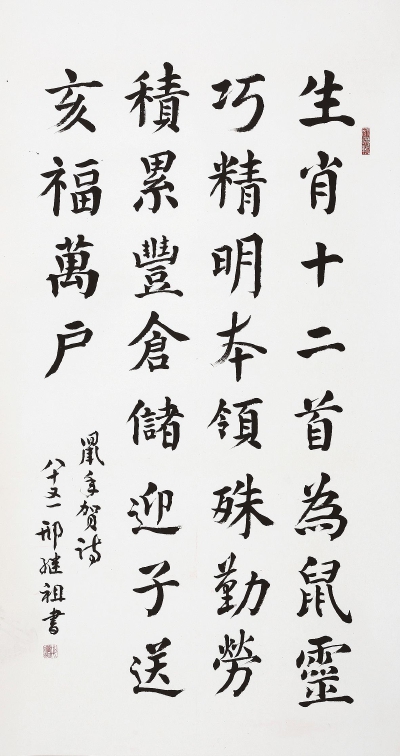 生肖十二首為鼠靈
巧精明本領殊勤勞
積累豐倉儲迎子送
亥福萬户
鼠年賀詩
八十又一邢继祖書